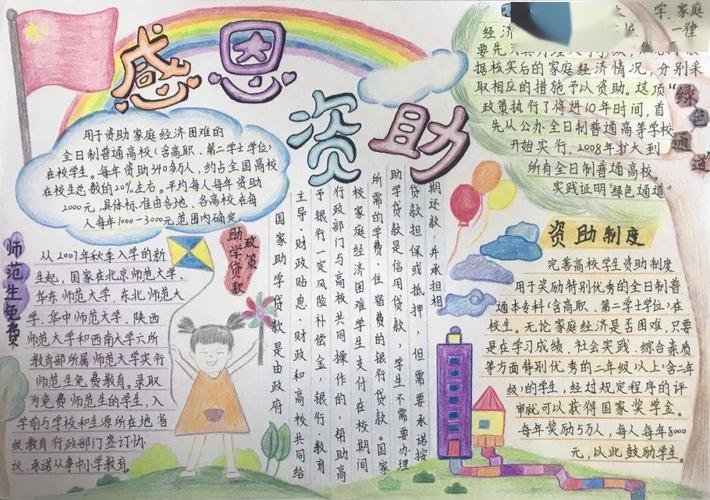 感恩
资助
用于资助家庭经济困难的
全日制普通高校(含高职、第二学士学位)
在校学生。每年资助约340万人，约占全国高校
在校生总数的20%左右。平均每人每年资助
2000元，具体标准由各地、各高校在每
人每年1000-3000元范围内确定。
师范生免费
从2007年秋季入学的新
生起，国家在北京师范大学、
华东师范大学、东北师范大
学、华中师范大学、陕西
师范大学和西南大学六所
教育部所属师范大学实行
师范生免费教育。录取
为免费师范生的学生，入
学前与学校和生源所在地省
级教育行政部门签订协
议，承诺从事中小学教育。
助学贷款
政策
国家助学贷款是由政府
主导、财政贴息、财政和高校共同给
予银行一定风险补偿金，银行、教育
行政部门与高校共同操作的，帮助高
校家庭经济困难学生支付在校期间
所需的学费、住宿费的银行贷款。国家
助学贷款是信用贷款，学生不需要办理
贷款担保或抵押，但需要承诺按
期还款，并承担相
学、家庭
经济
一律
要先
据核实后的家庭经济情况，分别采
取相应的措施予以资助。这项
政策执行了将进10年时间，首
先从公办全日制普通高等学校
开始实行，2008年扩大到
所有全日制普通高校。
实践证明"绿色通道"
绿色通道
资助制度
完善高校学生资助制度
用于奖励特别优秀的全日制普
通本专科(含高职、第二学士学位)在
校生。无论家庭经济是否困难，只要
是在学习成绩、社会实践、综合素质
等方面特别优秀的二年级以上(含二年
级)的学生，经过规定程序的评
审就可以获得国家奖学金。
每年奖励5万人，每人每年8000
元，以此鼓励学生。